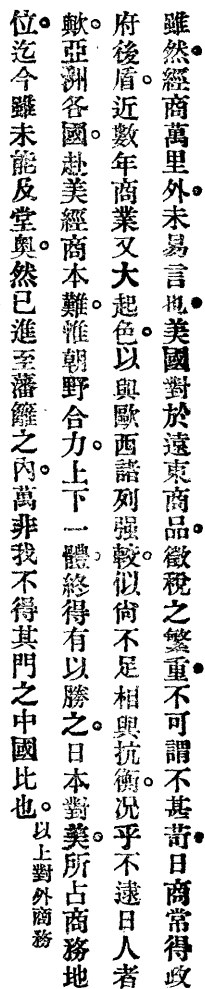 雖然經商萬里外未易言也美國對於遠東商品徵稅之繁重不可謂不甚苛日商常得政
府後盾近數年商業又大起色以與歐西諸列强較似尙不足相與抗衡况乎不逮日人者
歟亞洲各國赴美經商本難惟朝野合力上下一體終得有以勝之日本對美所占商務地
位迄今雖未能及堂奧然已進至藩籬之內萬非我不得其門之中國比也。以上對外商務